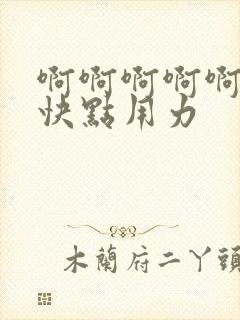 啊啊啊啊啊
快點用力
木蘭府二丫頭